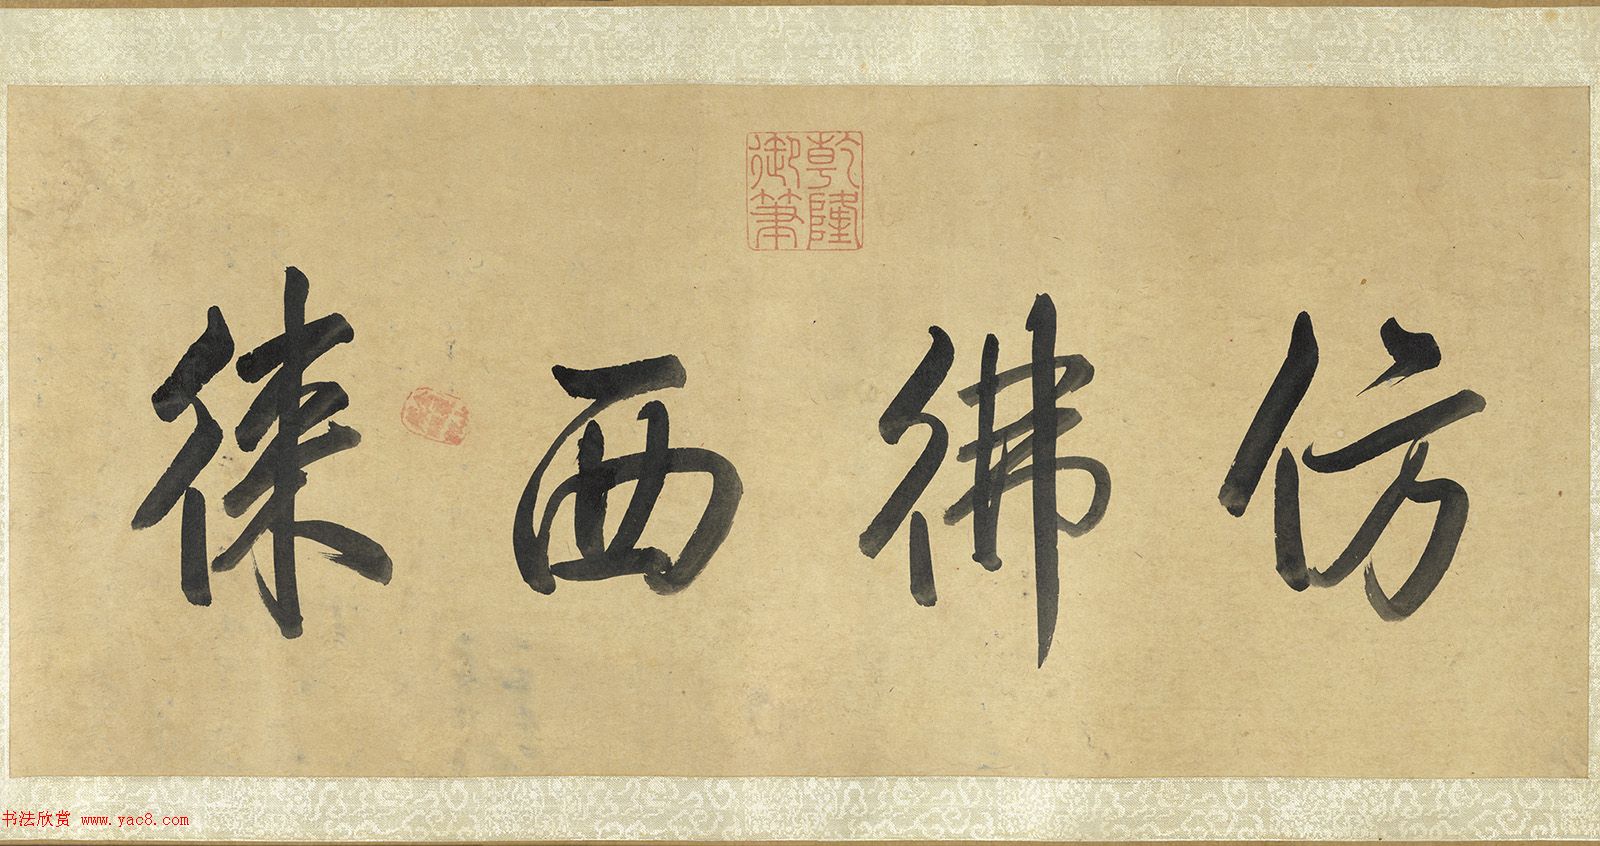 乾隆
御筆
仿彿西徠
书法欣赏 www.yac8.com